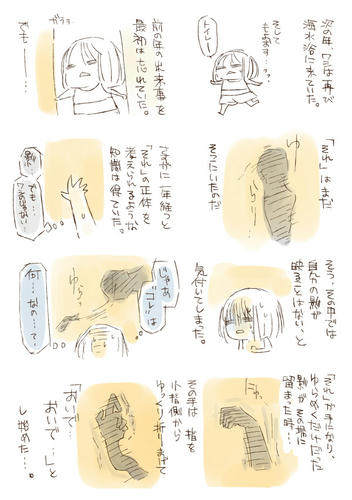 次の年、ワシは再び
海水浴に来ていた。
そして
もよおす…っ
トイレー
ガラッ…
前の年の出来事を
最初は忘れていた。
でも―…
「それ」はまだ
そこにいたのだ
ゆらり…
さすがに一年経つと
「それ」の正体を
考えられるような
知識は得ていた。
影
でも…
そう、その中では
自分の影が
映ることはない、と
気付いてしまった。
じゃあ
「コレ」は
何…なの…って
ゆらっ
「それ」が手になり、
ゆらめくだけだった
影がその場に
留まった時…
その手は 指を
小指側から
ゆっくり折りまげて
「おいで…
おいで…」と
し始めた…。